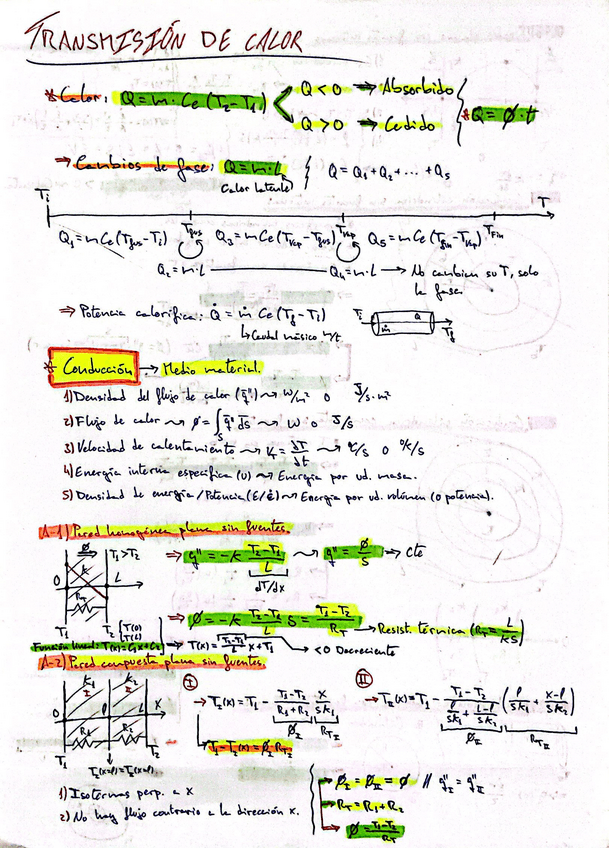 TRANSMISIÓN DE CALOR
* Calor: Q = m · Ce (T₂-T₁) < Q < 0 → Absorbido
Q > 0 → Cedido
* Q = Ø · t
⇒ Cambios de fase: Q = m · L
Calor latente
Q = Q₁ + Q₂ + ... + Q₅
Ti T
Tfus Tvap Tfin
Q₁ = m Ce (Tfus - Ti) Q₃ = m Ce (Tvap - Tfus) Q₅ = m Ce (Tfin - Tvap)
Q₂ = m · L Q₄ = m · L → No cambian su T, solo
la fase.
⇒ Potencia calorífica: Q̇ = ṁ Ce (Tf - Ti)
↳ Caudal másico m/t
Ti ṁ Q Tf
* Conducción → Medio material.
1) Densidad del flujo de calor (q̄") ⇝ W/m² o J/s·m²
2) Flujo de calor ⇝ Ø = ∫s q̄" ds̄ ⇝ W o J/s
3) Velocidad de calentamiento ⇝ Vt = dT/dt ⇝ ℃/s o ºK/s
4) Energía interna específica (u) ⇝ Energía por ud. masa.
5) Densidad de energía / Potencia (E/ė) ⇝ Energía por ud. volúmen (o potencia).
A-1) Pared homogénea plana sin fuentes.
Ø T₁ > T₂
k
0 L
RT
T₁ T₂ { T(0) T(L)
⇒ q" = -k (T₂-T₁)/L ⇝ q" = Ø/S → cte
dT/dx
⇒ Ø = -k (T₂-T₁)/L S = (T₁-T₂)/RT → Resist. térmica (RT = L/kS)
Función lineal: T(x) = C₁x + C₂ → T(x) = (T₂-T₁)/L x + T₁
<0 Decreciente
A-2) Pared compuesta plana sin fuentes.
k₁ k₂
I II
0 l L x
R₁ R₂
T₁ T₂
TI(x=l) = TII(x=l)
I
→ TI(x) = T₁ - (T₁-T₂)/(R₁+R₂) x/(Sk₁)
ØI RTI
T₁ - TI(x) = ØI RTI
II
→ TII(x) = T₁ - (T₁-T₂)/(l/(Sk₁) + (L-l)/(Sk₂)) (l/(Sk₁) + (x-l)/(Sk₂))
ØII RTII
1) Isotermas perp. a x
2) No hay flujo contrario a la dirección x.
→ ØI = ØII = Ø // q"I = q"II
→ RT = R₁ + R₂
→ Ø = (T₁-T₂)/RT